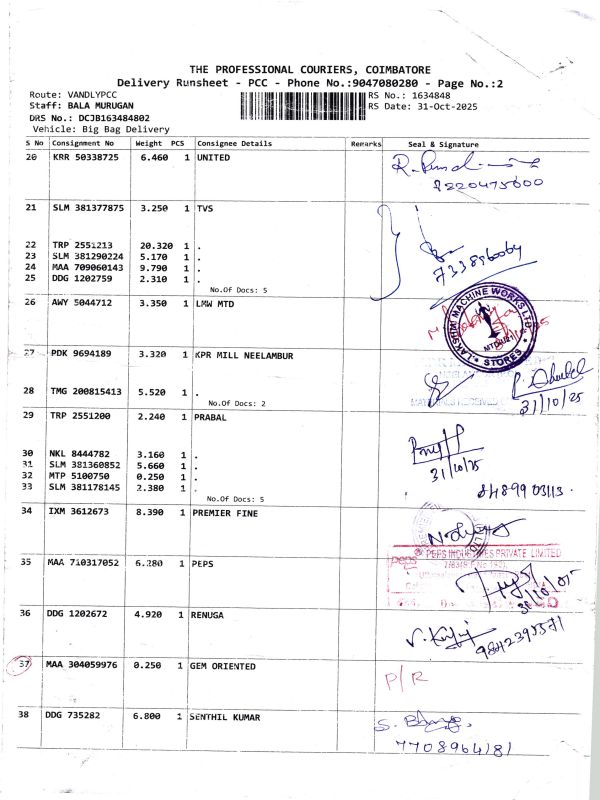 THE PROFESSIONAL COURIERS, COIMBATORE
Delivery Runsheet - PCC - Phone No.:9047080280 - Page No.:2
Route: VANDLYPCC
Staff: BALA MURUGAN
DRS No.: DCJB163484802
Vehicle: Big Bag Delivery
RS No.: 1634848
RS Date: 31-Oct-2025
S No Consignment No Weight PCS Consignee Details Remarks Seal & Signature
20 KRR 50338725 6.460 1 UNITED
8220475600
21 SLM 381377875 3.250 1 TVS
22 TRP 2551213 20.320 1 .
23 SLM 381290224 5.170 1 .
24 MAA 709060143 9.790 1 .
25 DDG 1202759 2.310 1 .
No.Of Docs: 5
26 AWY 5044712 3.350 1 LMW MTD
LAKSHMI MACHINE WORKS LTD
STORES
27 PDK 9694189 3.320 1 KPR MILL NEELAMBUR
28 TMG 200815413 5.520 1 .
No.Of Docs: 2
31/10/25
29 TRP 2551200 2.240 1 PRABAL
30 NKL 8444782 3.160 1 .
31 SLM 381360852 5.660 1 .
32 MTP 5100750 0.250 1 .
33 SLM 381178145 2.380 1 .
No.Of Docs: 5
31/10/25
8489903113
34 IXM 3612673 8.390 1 PREMIER FINE
35 MAA 710317052 6.280 1 PEPS
PEPS INDUSTRIES PRIVATE LIMITED
36 DDG 1202672 4.920 1 RENUGA
37 MAA 304059976 0.250 1 GEM ORIENTED
P/R
38 DDG 735282 6.800 1 SENTHIL KUMAR
7708964181